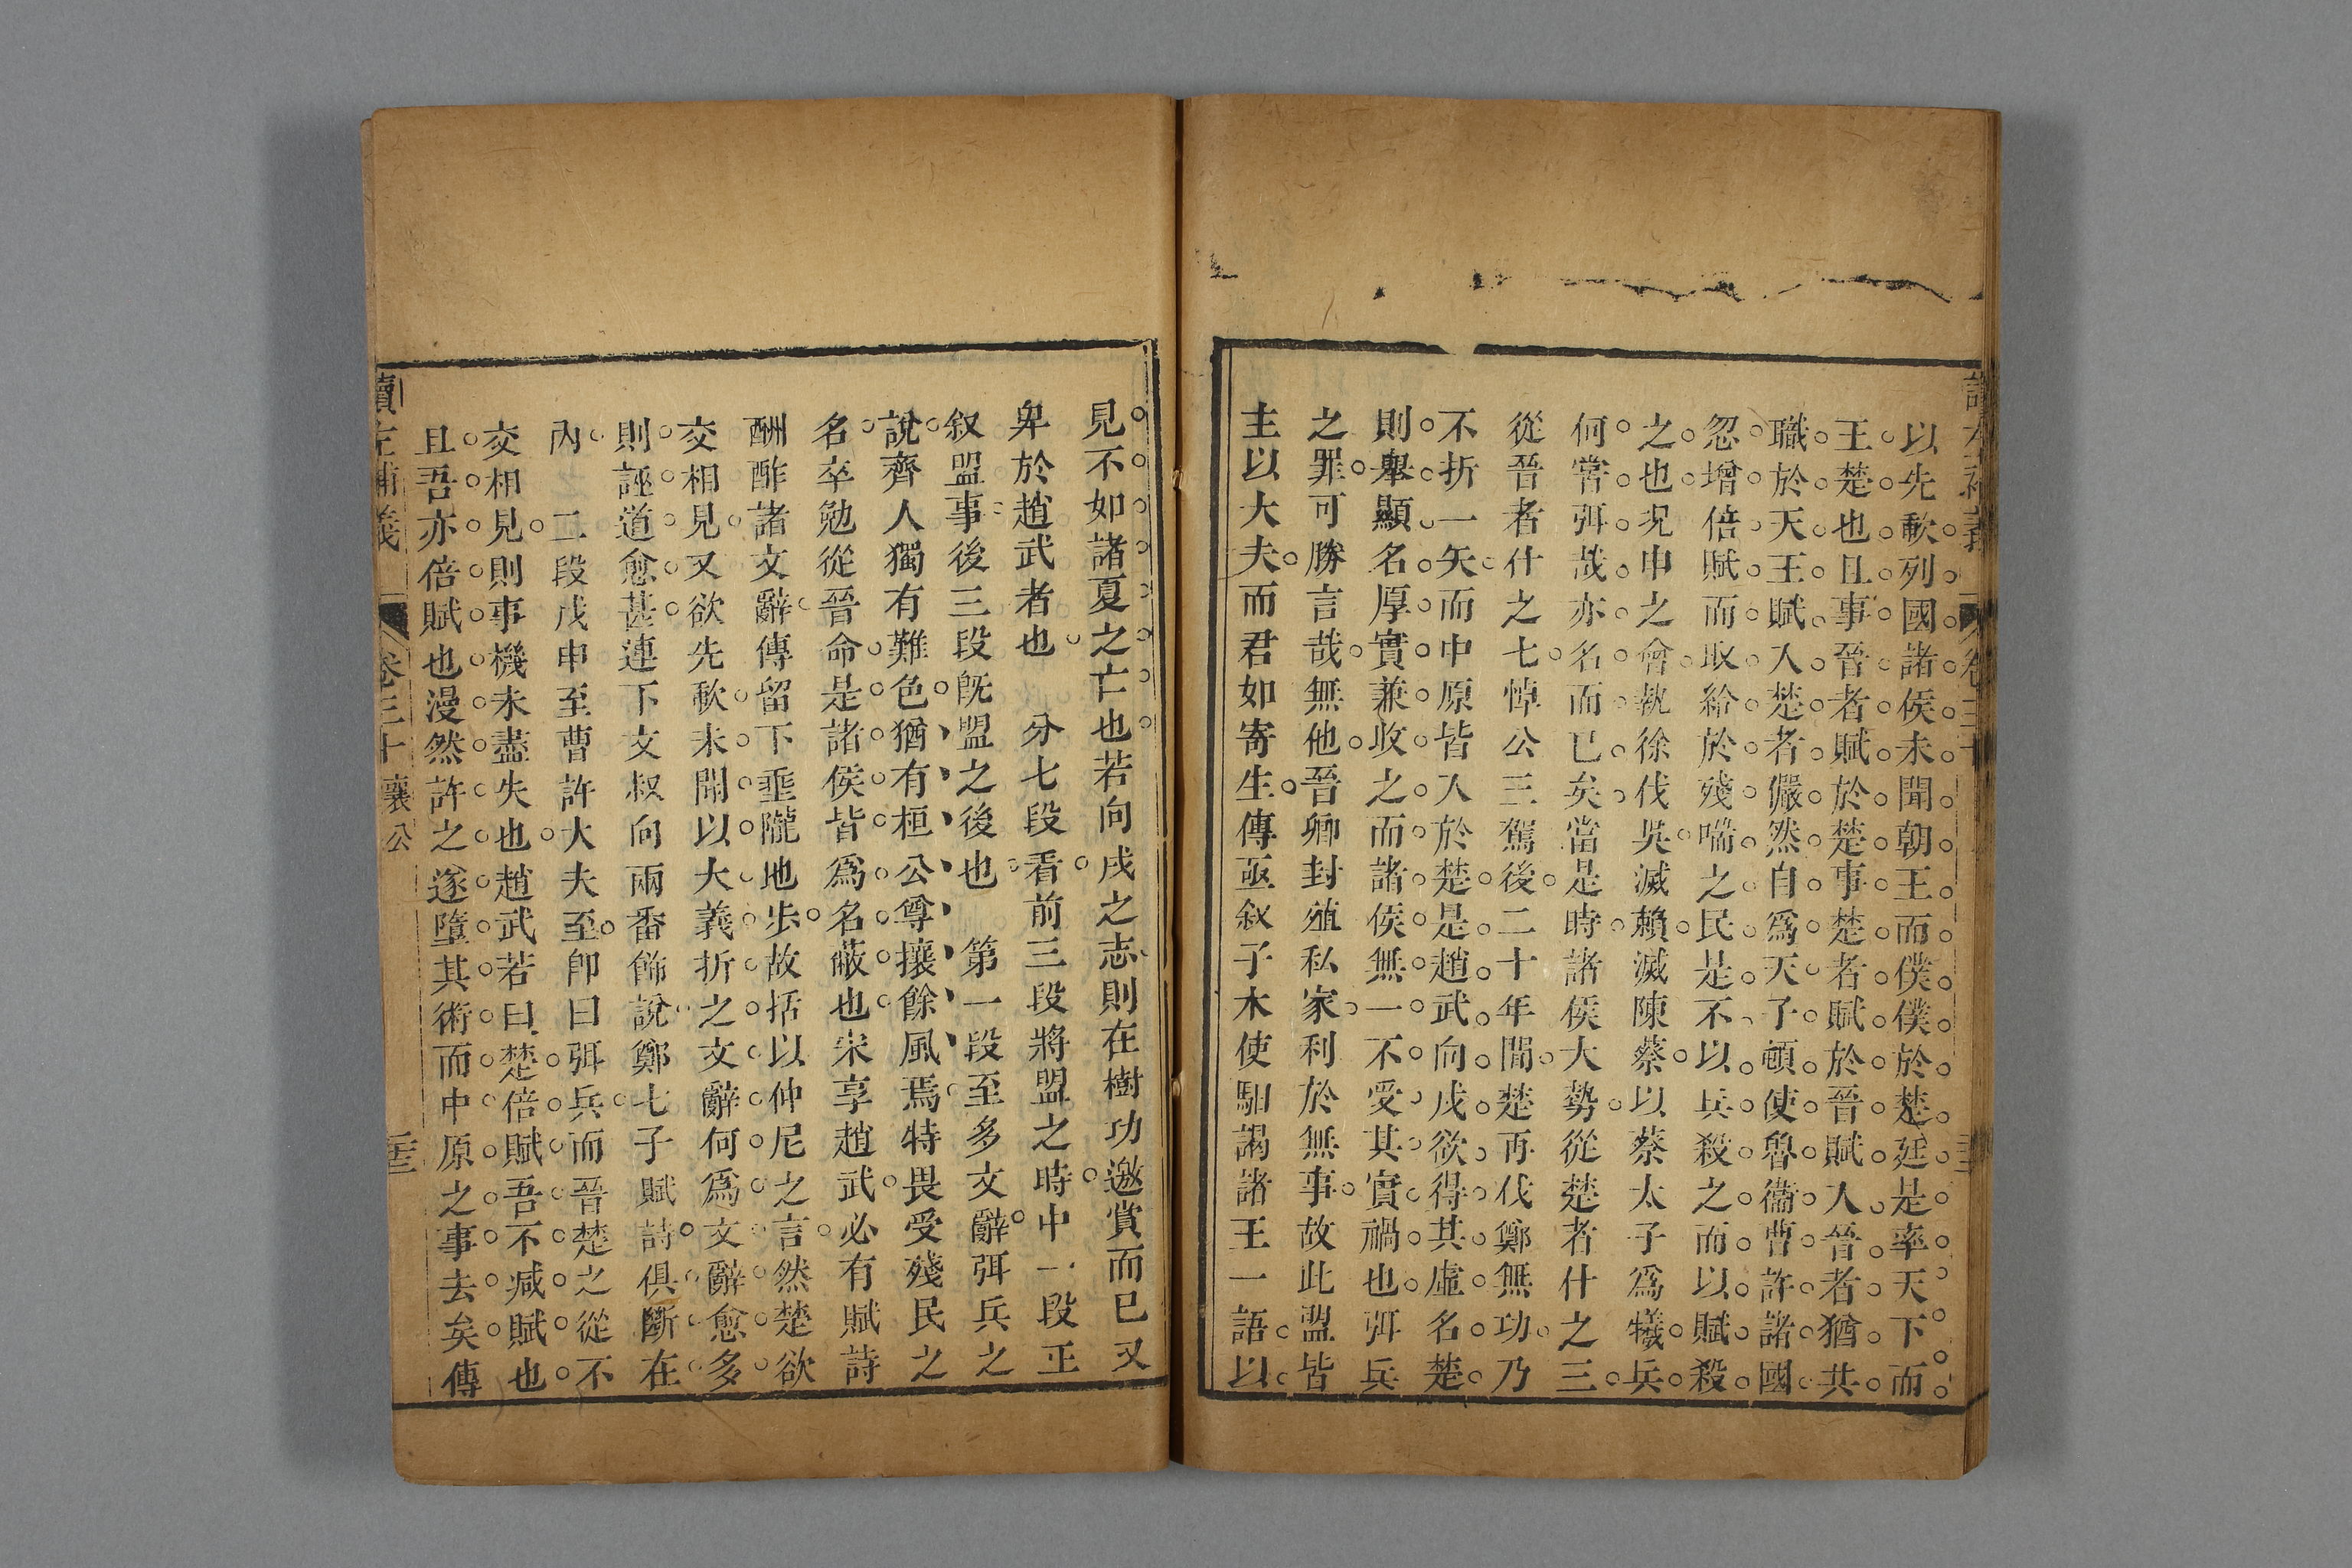 以先歃列國諸侯未聞朝王而僕僕於楚廷是率天下而
王楚也且事晉者賦於楚事楚者賦於晉賦入晉者猶共
職於天王賦入楚者儼然自爲天子頓使魯衞曹許諸國
忽增倍賦而取給於殘喘之民是不以兵殺之而以賦殺
之也况申之會執徐伐吳滅賴滅陳蔡以蔡太子爲犧兵
何嘗弭哉亦名而已矣當是時諸侯大勢從楚者什之三
從晉者什之七悼公三駕後二十年間楚再伐鄭無功乃
不折一矢而中原皆入於楚是趙武向戌欲得其虛名楚
則舉顯名厚實兼收之而諸侯無一不受其實禍也弭兵
之罪可勝言哉無他晉卿封殖私家利於無事故此盟皆
主以大夫而君如寄生傳亟叙子木使馹謁諸王一語以
見不如諸夏之亡也若向戌之志則在樹功邀賞而已又
卑於趙武者也　分七段看前三段將盟之時中一段正
叙盟事後三段旣盟之後也　第一段至多文辭弭兵之
說齊人獨有難色猶有桓公尊攘餘風焉特畏受殘民之
名卒勉從晉命是諸侯皆爲名蔽也宋享趙武必有賦詩
酬酢諸文辭傳留下埀隴地步故括以仲尼之言然楚欲
交相見又欲先歃未聞以大義折之文辭何爲文辭愈多
則誣道愈甚連下文叔向兩番飾說鄭七子賦詩俱斷在
內　二段戊申至曹許大夫至卽曰弭兵而晉楚之從不
交相見則事機未盡失也趙武若曰楚倍賦吾不减賦也
且吾亦倍賦也漫然許之遂墮其術而中原之事去矣傳
讀左補義　卷三十襄公　三